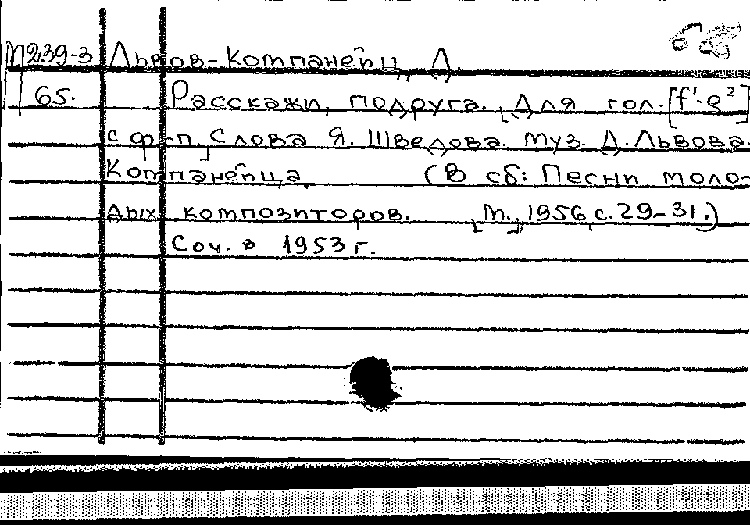 М239-3 Львов-Компанеец, Д.
65. Расскажи, подруга. [Для гол. [f'-e²]
с ф-п.] Слова Я. Шведова. Муз. Д. Львова-
Компанейца. (В сб: Песни моло-
дых композиторов. [М.,] 1956, с. 29-31.)
Соч. в 1953 г.